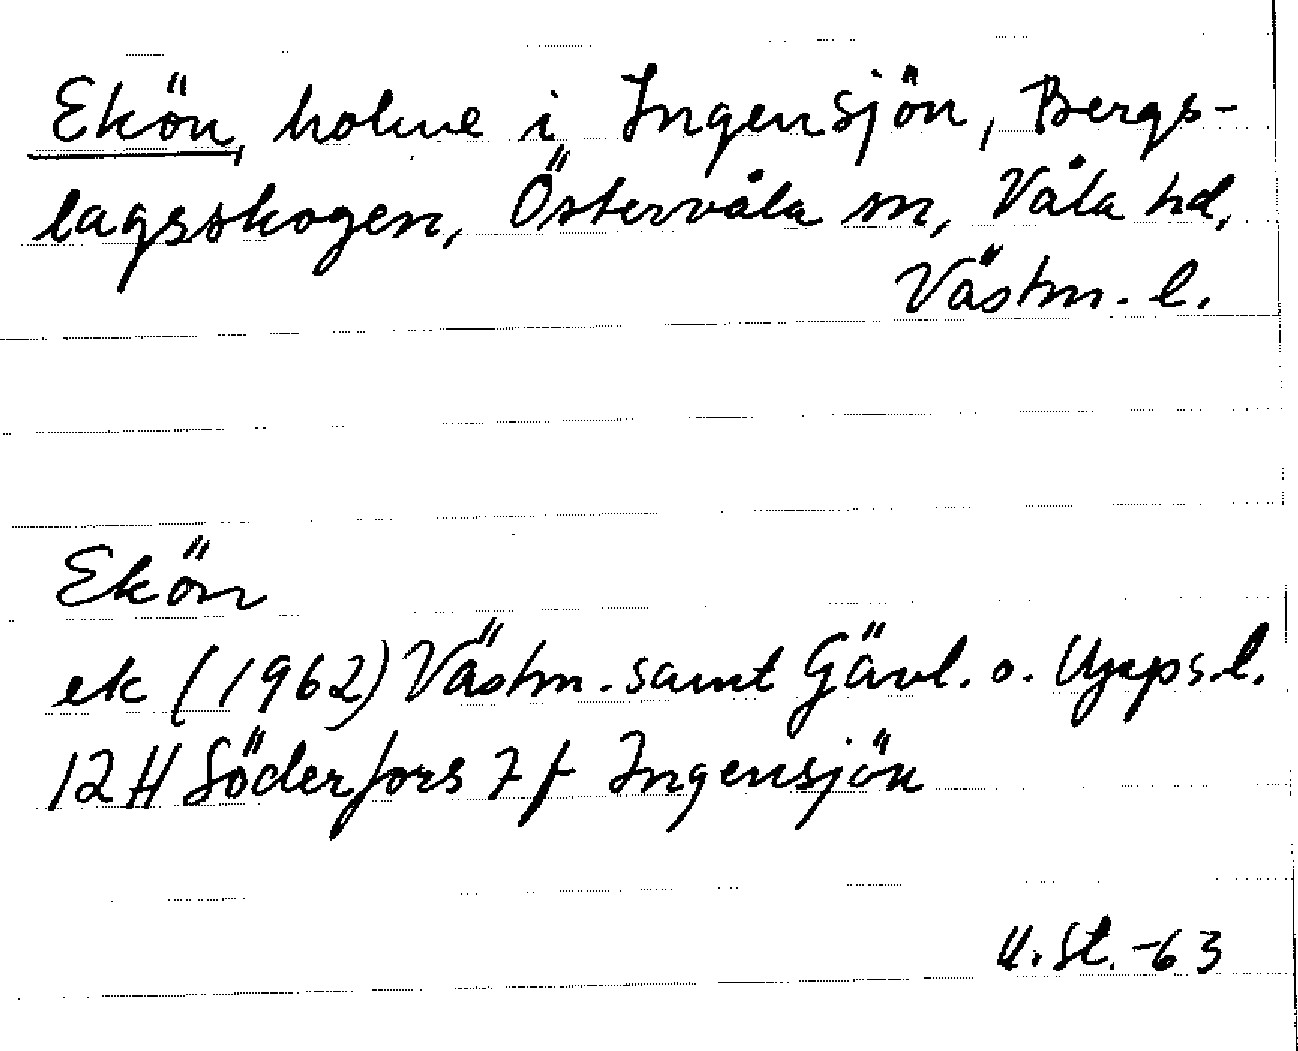 Ekön, holme i Ingensjön, Bergs-
lagsskogen, Östervåla sn, Våla hd,
Västm. l.
Ekön
ek (1962) Västm. samt Gävl. o. Upps. l.
12 H Söderfors 7 f Ingensjön
St. -63